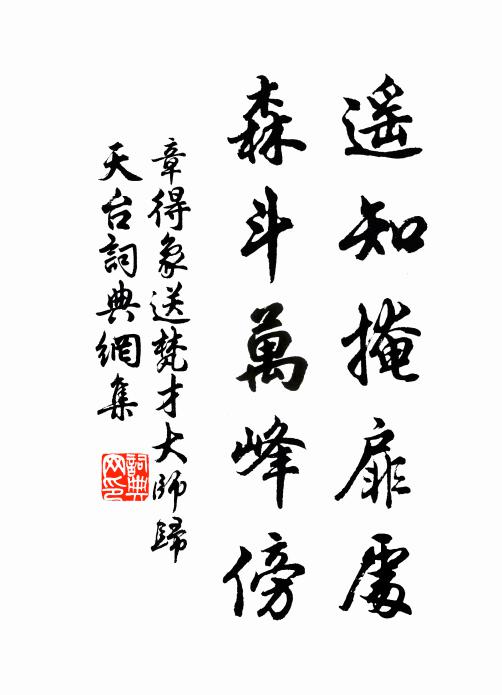 遥知掩扉處
森斗萬峰傍
章得象送梵才大師歸
天台詞典網集
詞典
网印